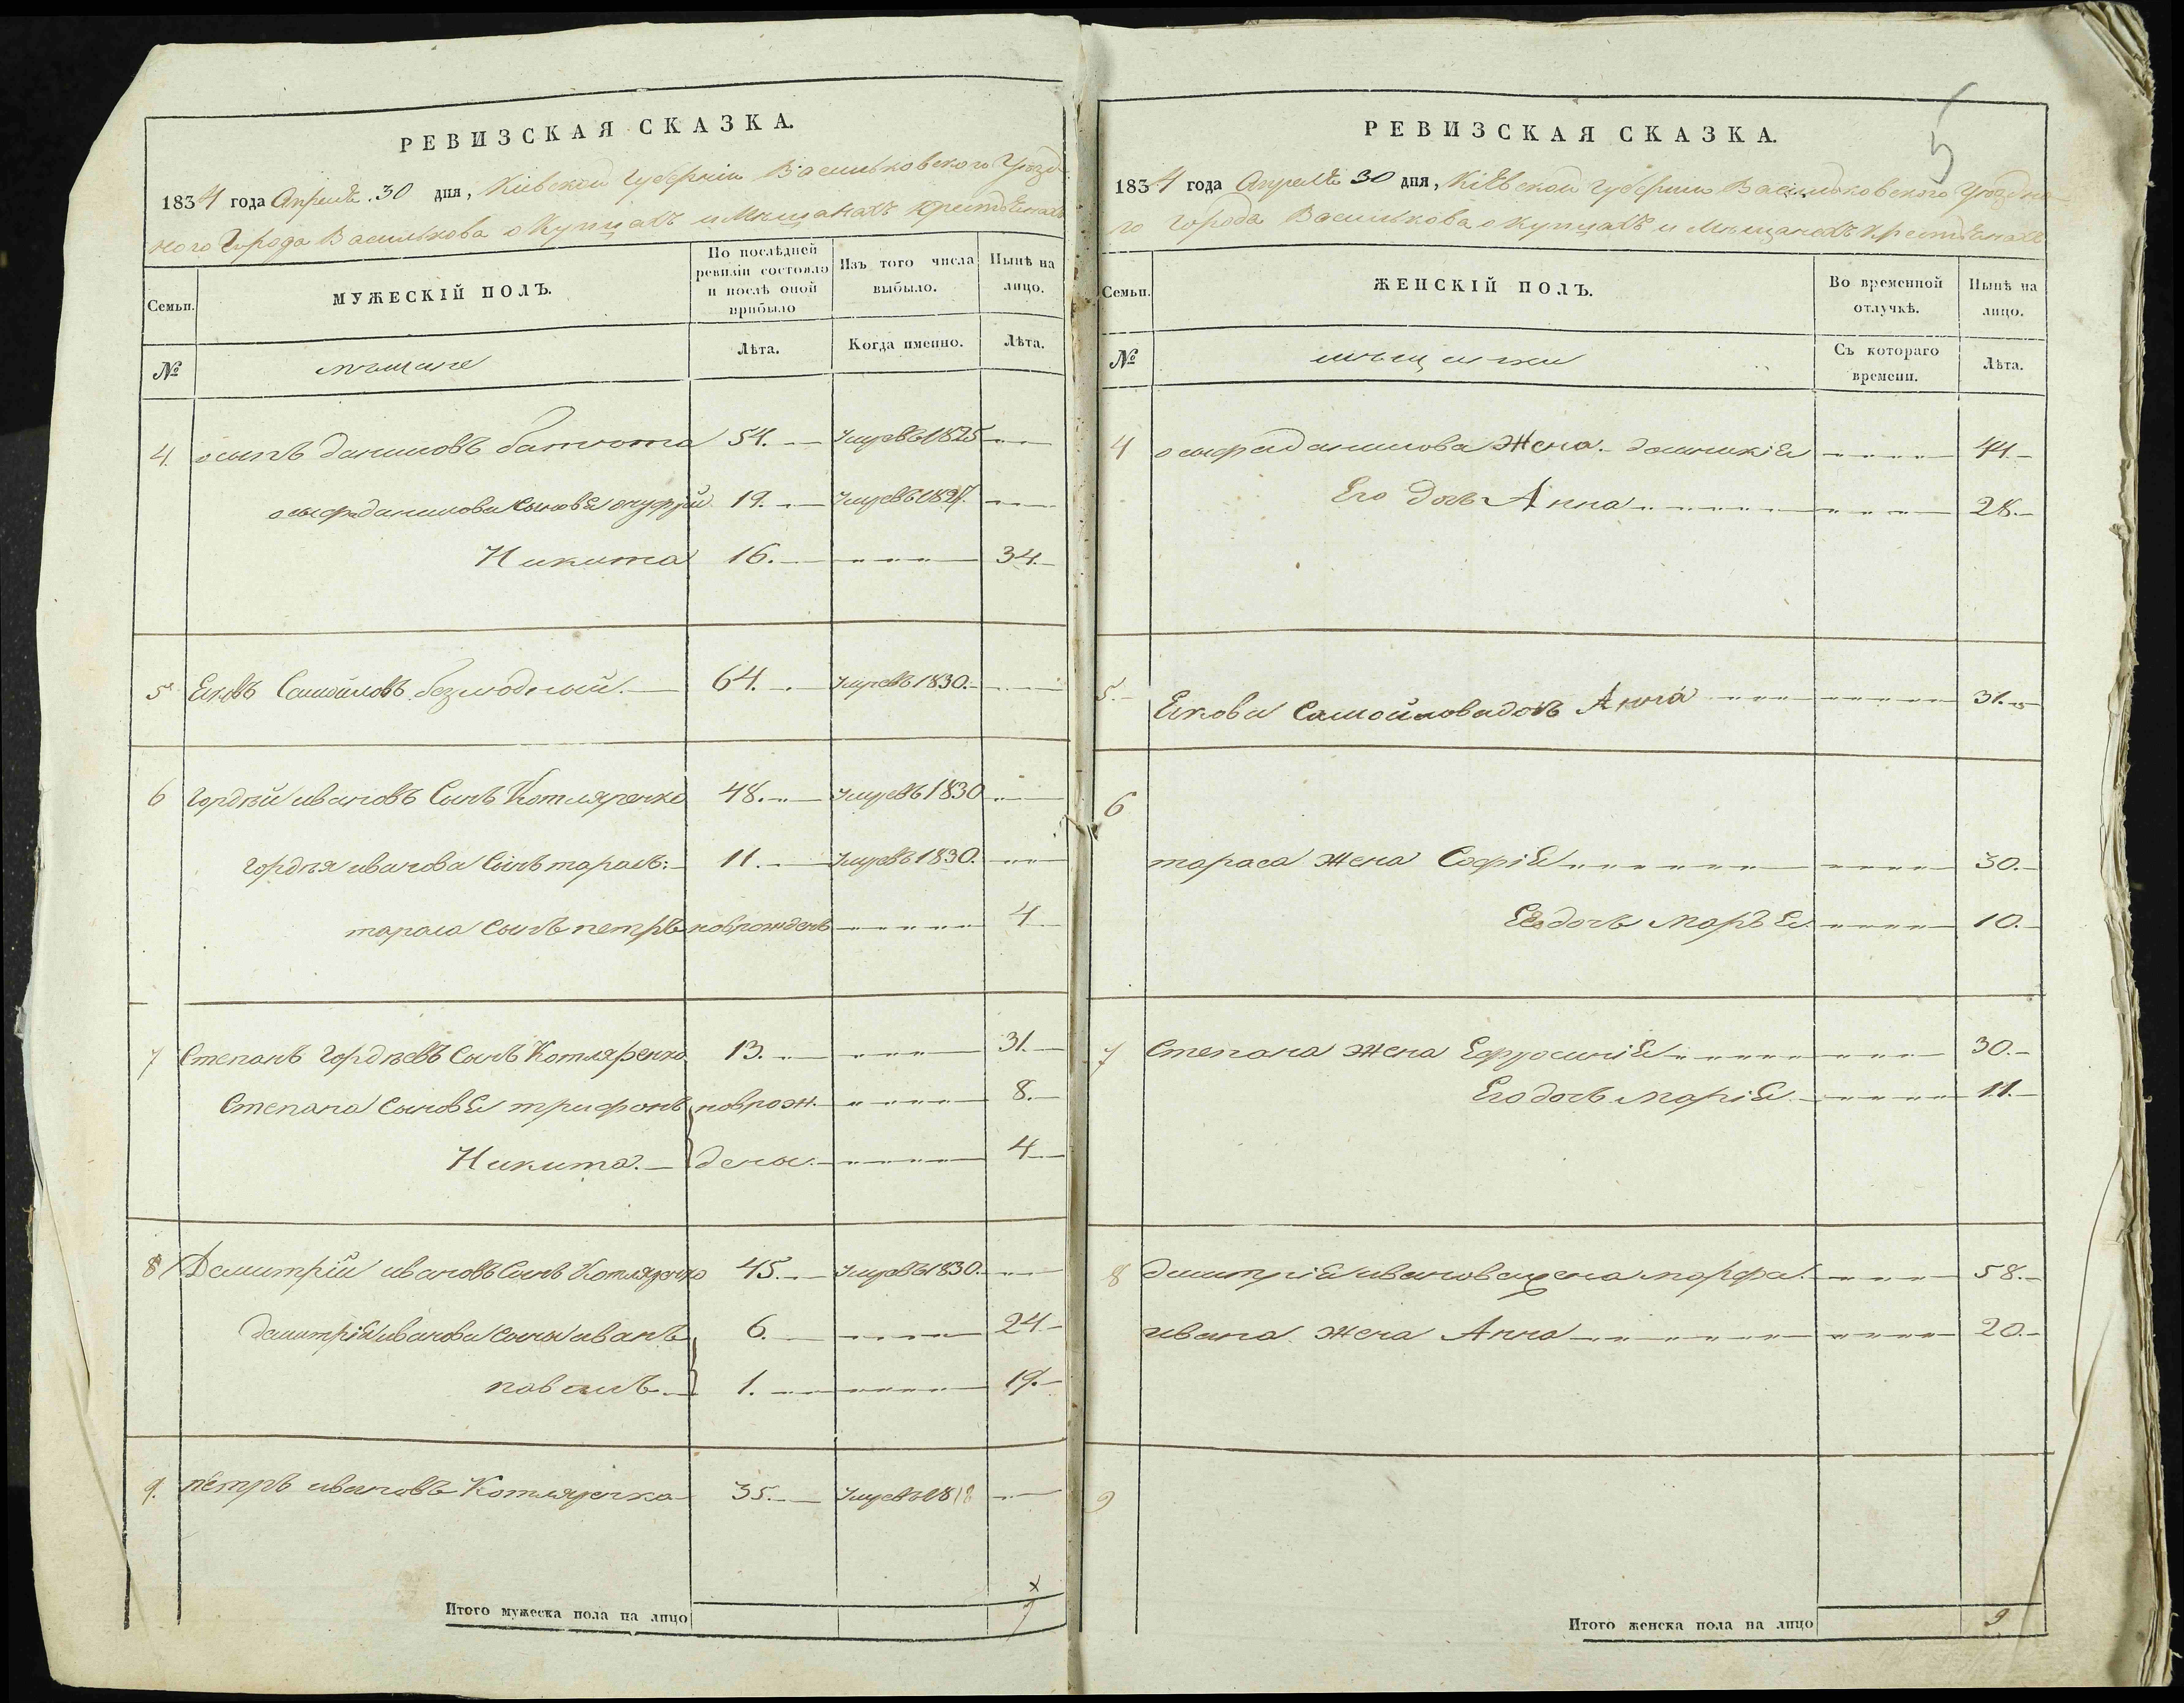 РЕВИЗСКАЯ СКАЗКА.
1834 года Апреля 30 дня, Кіевской Губерніи Васильковского Уезд
ного Города Василькова о Купцахъ и Мещанахъ христіянахъ
Семьи.
МУЖЕСКІЙ ПОЛЪ.
По послѣдней ревизіи состояло и послѣ оной прибыло
Изъ того числа выбыло.
Нынѣ на лицо.
№
мещане
Лѣта.
Когда именно.
Лѣта.
4. осипъ даниловъ 54. Умревъ 1825
осифа данилова сыновья онуфрій 19. Умревъ 1827.
Никита 16. 34.
5 Яковъ Самойловъ безлюдный. 64. Умревъ 1830.
6 Гордѣй ивановъ Сынъ Котляренко 48. Умревъ 1830
Гордѣя иванова Сынъ тарасъ: 11. Умревъ 1830.
тараса Сынъ петръ новрожденъ 4
7 Степанъ Гордѣевъ Сынъ Котляренко 13. 31.
Степана Сыновья трифонъ новрож. 8.
Никита. дены. 4
8 Демитрій ивановъ Сынъ Котляренко 45. Умревъ 1830.
демитрія иванова сыны иванъ 6. 24.
павелъ 1. 19.
9. петръ ивановъ Котляренко 35. Умревъ 1818
Итого мужеска пола на лицо 7
5
РЕВИЗСКАЯ СКАЗКА.
1834 года Апреля 30 дня, Кіевской Губерніи Васильковского Уездно
го города Василькова о купцахъ и Мещанахъ христіянахъ
Семьи.
ЖЕНСКІЙ ПОЛЪ.
Во временной отлучкѣ.
Нынѣ на лицо.
№
мещанки
Съ котораго времени.
Лѣта.
4 осифа данилова Жена 44.
Его дочь Анна 28.
5. Якова Самойлова дочь Анна 31.
6
тараса жена Софія 30.
Его дочь марья 10.
7 Степана жена Ефросинія 30.
Его дочь марія 11.
8 дмитрія иванова жена марфа 58.
ивана жена Анна 20.
9
Итого женска пола на лицо 9